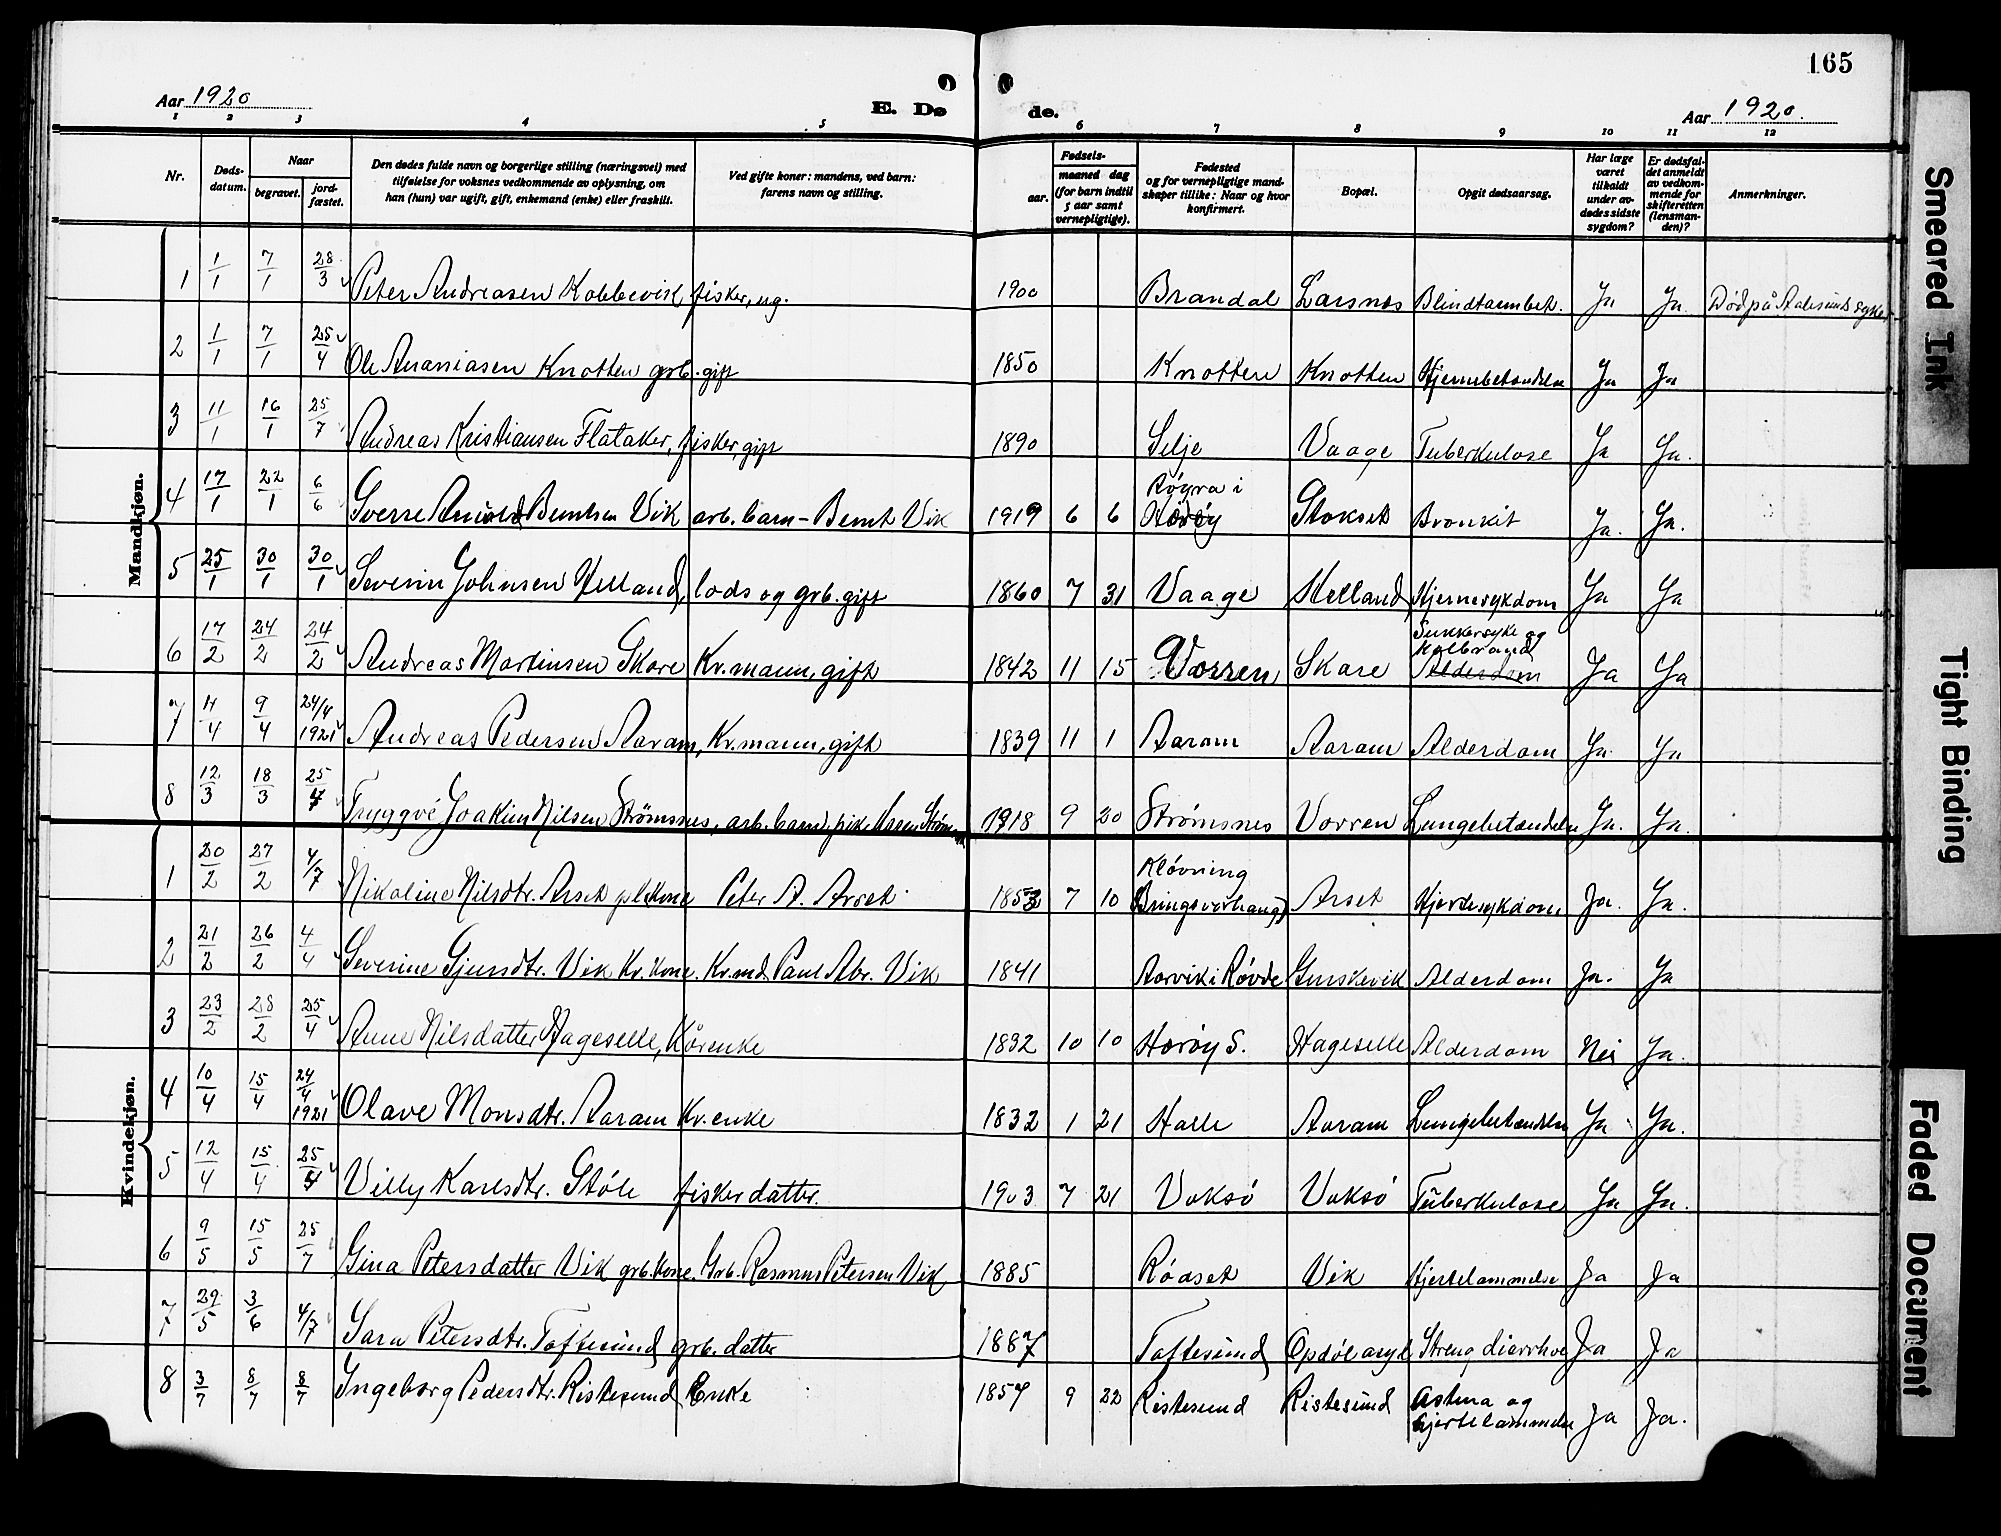 165
Aar 1920
E. Dø
de.
Aar 1920.
1 2 3 4 5 6 7 8 9 10 11 12
Nr.
Døds-
datum.
Naar
begravet.
jord-
fæstet.
Den dødes fulde navn og borgerlige stilling (næringsvei) med
tilføielse for voksnes vedkommende av oplysning, om
han (hun) var ugift, gift, enkemand (enke) eller fraskilt.
Ved gifte koner: mandens, ved barn:
farens navn og stilling.
Fødsels-
aar.
maaned dag
(for barn indtil
5 aar samt
vernepligtige).
Fødested
og for vernepligtige mand-
skaper tillike: Naar og hvor
konfirmert.
Bopæl.
Opgit dødsaarsag.
Har læge
været
tilkaldt
under av-
dødes sidste
sygdom?
Er dødsfal-
det anmeldt
av vedkom-
mende for
skifteretten
(lensman-
den)?
Anmerkninger.
Mandkjøn.
1 1/1 7/1 28/3 Peter Andreasen Kobbevik fisker, ug. 1900 Brandal Larsnes Blindtarmbet. Ja Ja. Død på Aalesunds syke
2 1/1 7/1 25/4 Ole Ananiasen Knotten grb. gift 1850 Knotten Knotten Hjernebetændelse Ja Ja
3 11/1 16/1 25/7 Andreas Kristiansen Flataker, fisker, gift 1890 Selje Vaage Tuberkulose Ja Ja.
4 17/1 22/1 6/6 Sverre Arnold Berntsen Vik arb. barn - Bernt Vik 1919 6 6 Røyra i Herøy Stokset Bronkit Ja. Ja.
5 25/1 30/1 30/1 Severin Johnsen Helland, lods og grb. gift 1860 7 31 Vaage Helland Hjernesykdom Ja Ja
6 17/2 24/2 24/2 Andreas Martinsen Skare Kv. mann, gift 1842 11 15 Vorren Skare Sukkersyke og Kolbrand Alderdom Ja Ja
7 4/4 9/4 24/4 1921 Andreas Pedersen Aaram, Kv. mann, gift 1839 11 1 Aaram Aaram Alderdom Ja. Ja
8 12/3 18/3 25/4 Tryggve Joakim Nilsen Strømsnes, arb. barn, 1918 9 20 Strømsnes Vorren Lungebetændelse Ja. Ja.
Kvindekjøn.
1 20/2 27/2 4/7 Nikoline Nilsdtr. Årset plskone Peter A. Årset 1853 7 10 Kløvning (Bringsvorhaug) Årset Hjertesykdom Ja. Ja.
2 21/2 26/2 4/4 Severine Gjersdtr. Vik Kv. kone. Kv. md. Paul Abr. Vik 1841 Aarvik i Røvde Gurskevik Alderdom Ja. Ja
3 23/2 28/2 25/4 Anne Nilsdatter Hageselle, Kårenke 1832 10 10 Herøy S. Hageselle Alderdom Nei Ja.
4 10/4 15/4 24/4 1921 Olave Monsdtr. Aaram Kv. enke 1832 1 21 Halle Aaram Lungebetændelse Ja Ja.
5 12/4 15/4 25/4 Villy Karlsdtr. Støle fisker datter. 1903 7 21 Voksö Voksö Tuberkulose Ja Ja.
6 9/5 15/5 25/7 Gina Petersdatter Vik grb. kone. Grb. Rasmus Petersen Vik 1885 Rödset Vik Hjertelammelse Ja Ja
7 29/5 3/6 4/7 Sara Petersdtr. Toftesund grb. datter 1887 Toftesund Opdöl asyl Streng diarrhoe Ja Ja
8 3/7 8/7 8/7 Ingeborg Pedersdtr. Ristesund Enke 1857 9 22 Ristesund Ristesund Astma og hjertelammelse Ja Ja.
Smeared Ink
Tight Binding
Faded Document